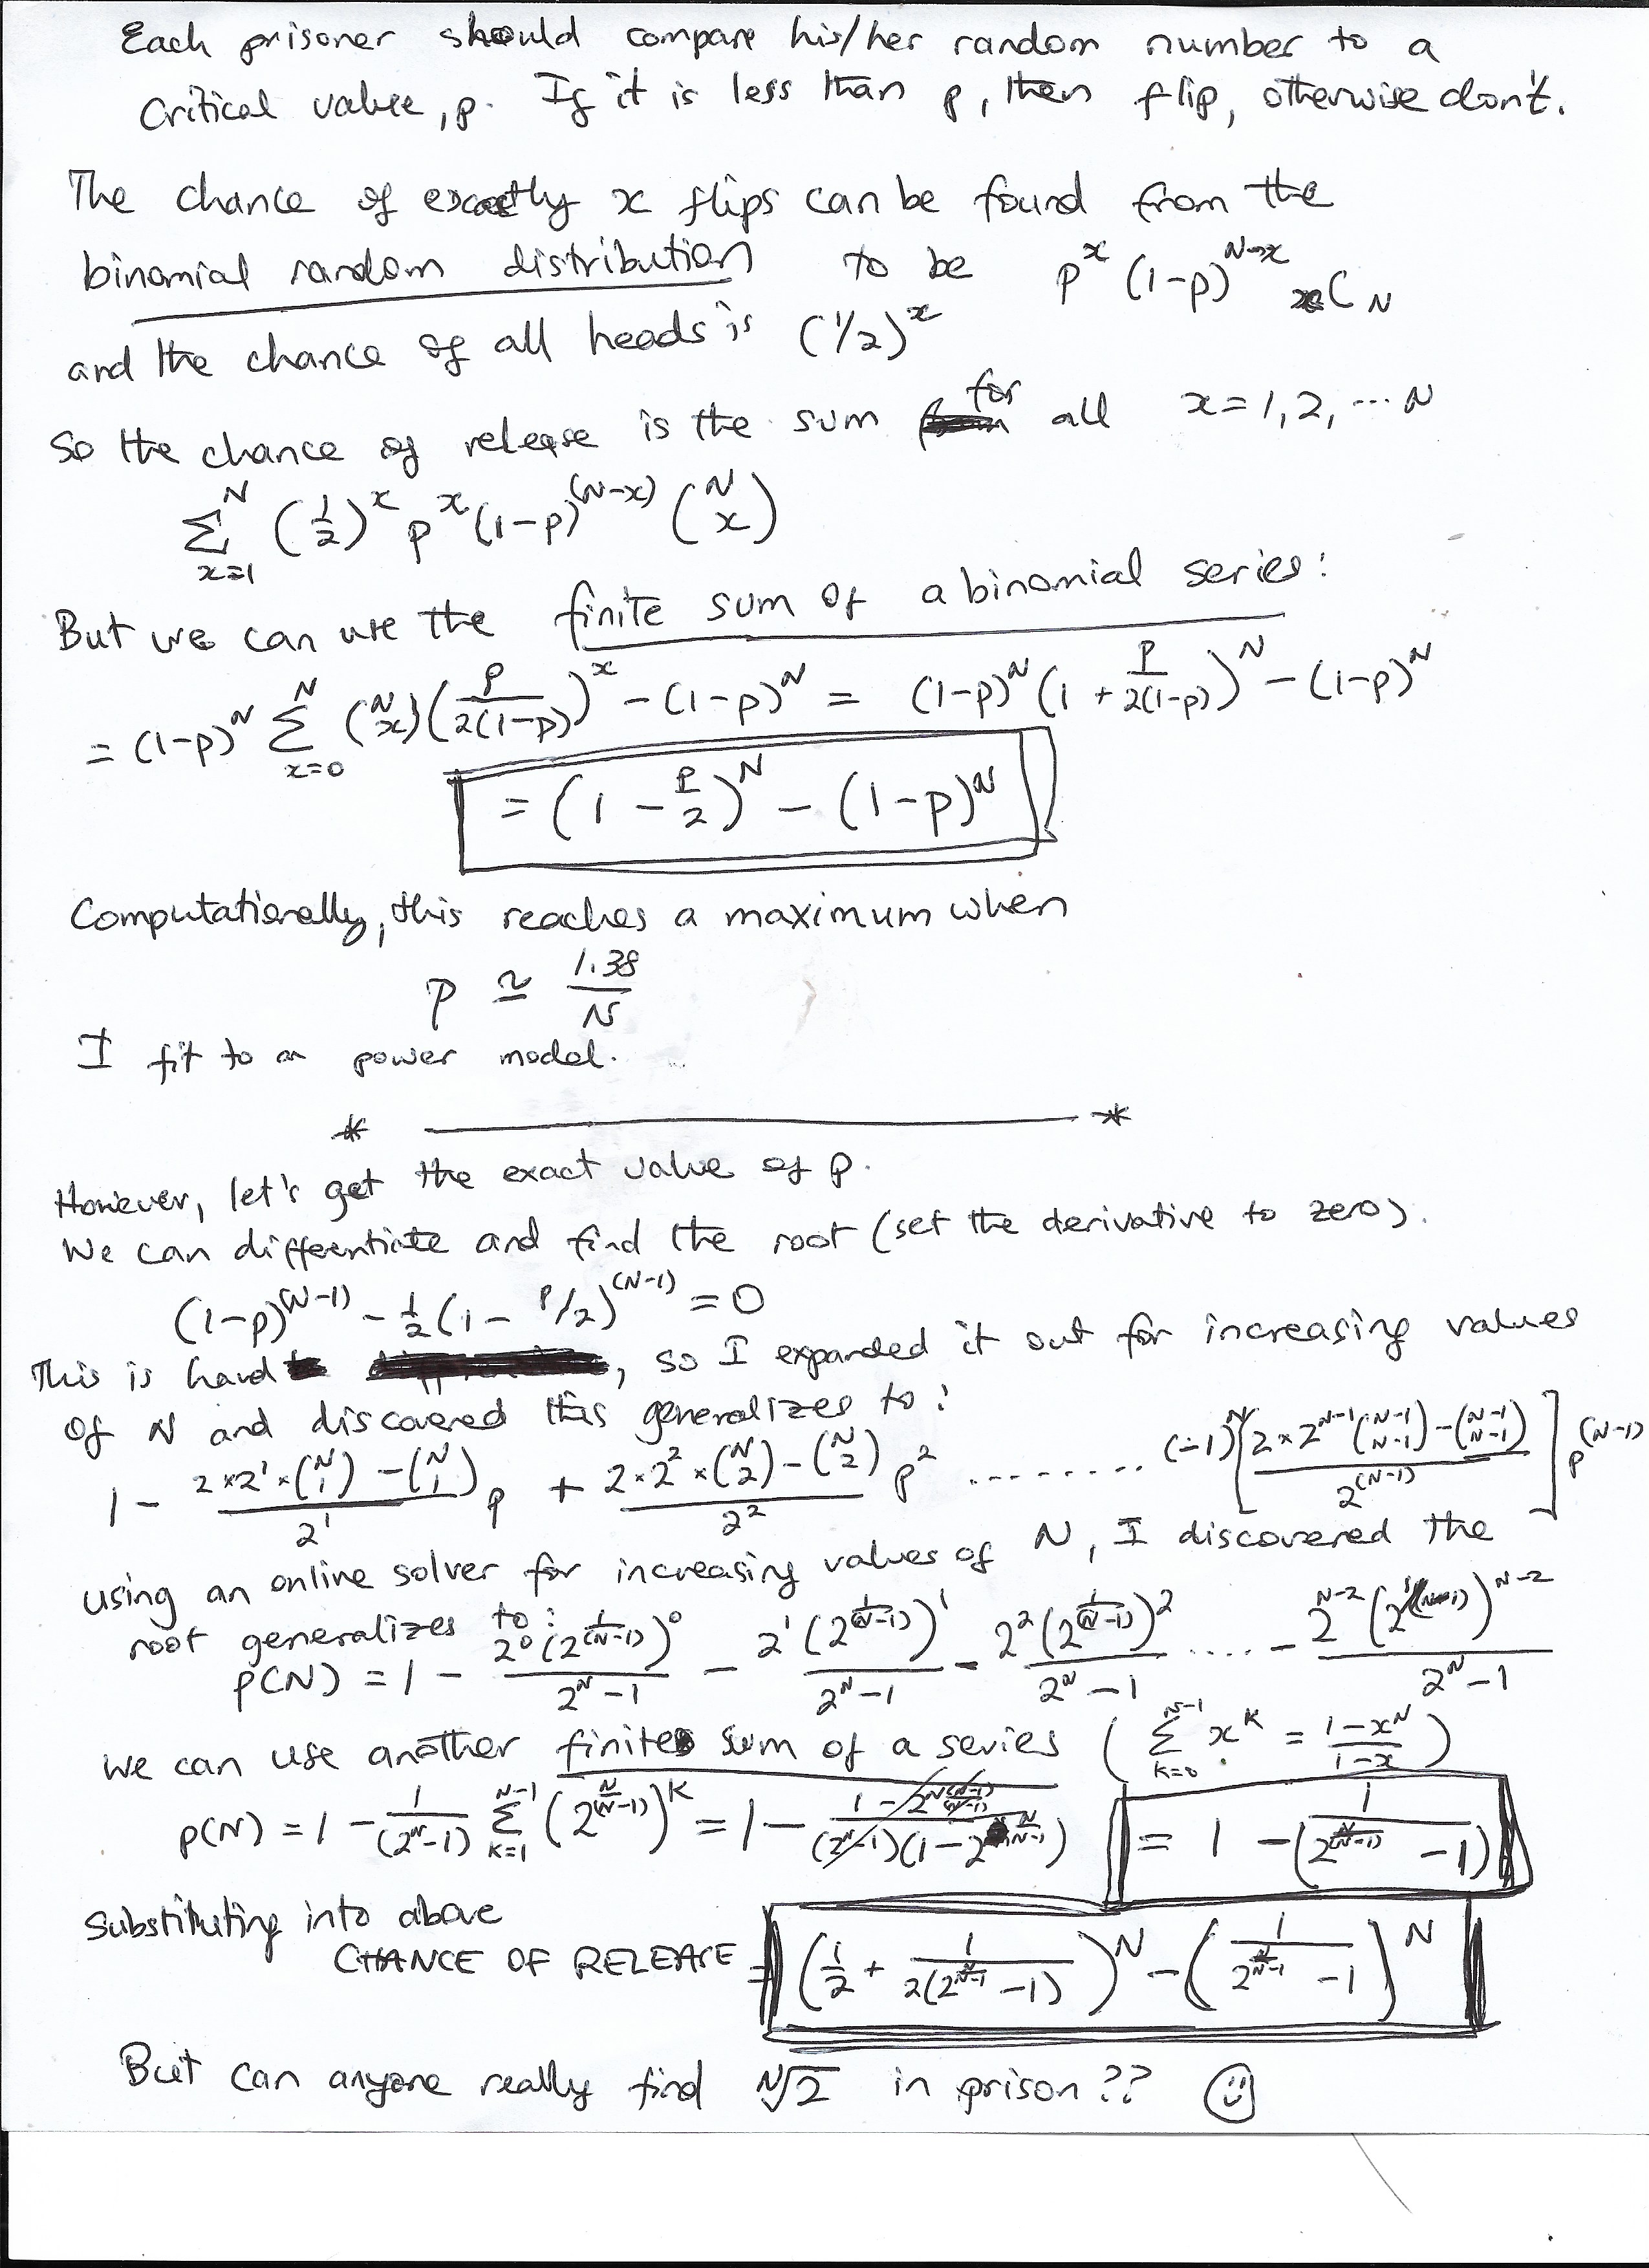 Each prisoner should compare his/her random number to a
critical value, p. If it is less than p, then flip, otherwise don't.
The chance of exactly x flips can be found from the
binomial random distribution to be p^x (1-p)^{N-x} _xC_N
and the chance of all heads is (1/2)^x
So the chance of release is the sum for all x=1,2,...N
\sum_{x=1}^{N} (\frac{1}{2})^x p^x (1-p)^{(N-x)} \binom{N}{x}
But we can use the finite sum of a binomial series:
= (1-p)^N \sum_{x=0}^{N} \binom{N}{x} (\frac{p}{2(1-p)})^x - (1-p)^N = (1-p)^N (1 + \frac{p}{2(1-p)})^N - (1-p)^N
= (1 - \frac{p}{2})^N - (1-p)^N
Computationally, this reaches a maximum when
p ≃ \frac{1.38}{N}
I fit to a power model.
* ——— *
However, let's get the exact value of p.
We can differentiate and find the root (set the derivative to zero).
(1-p)^{(N-1)} - \frac{1}{2}(1 - p/2)^{(N-1)} = 0
This is hard, so I expanded it out for increasing values
of N and discovered this generalizes to:
1 - \frac{2×2^1×\binom{N}{1} - \binom{N}{1}}{2^1} p + \frac{2×2^2×\binom{N}{2} - \binom{N}{2}}{2^2} p^2 ........ (-1)^N [\frac{2×2^{N-1}\binom{N-1}{N-1} - \binom{N-1}{N-1}}{2^{(N-1)}}] p^{(N-1)}
using an online solver for increasing values of N, I discovered the
root generalizes to:
p(N) = 1 - \frac{2^0 (2^{\frac{1}{(N-1)}})^0}{2^N-1} - \frac{2^1 (2^{\frac{1}{(N-1)}})^1}{2^N-1} - \frac{2^2 (2^{\frac{1}{(N-1)}})^2}{2^N-1} .... - \frac{2^{N-2} (2^{1/(N-1)})^{N-2}}{2^N-1}
we can use another finite sum of a series (\sum_{k=0}^{N-1} x^k = \frac{1-x^N}{1-x})
p(N) = 1 - \frac{1}{(2^N-1)} \sum_{k=1}^{N-1} (2^{\frac{N}{(N-1)}})^k = 1 - \frac{1-2^{N\frac{(N-1)}{(N-1)}}}{(2^N-1)(1-2^{\frac{N}{(N-1)}})} = 1 - \frac{1}{(2^{\frac{N}{(N-1)}} - 1)}
Substituting into above
CHANCE OF RELEASE = (\frac{1}{2} + \frac{1}{2(2^{\frac{N}{N-1}} - 1)})^N - (\frac{1}{2^{\frac{N}{N-1}} - 1})^N
But can anyone really find \sqrt[N]{2} in prison??